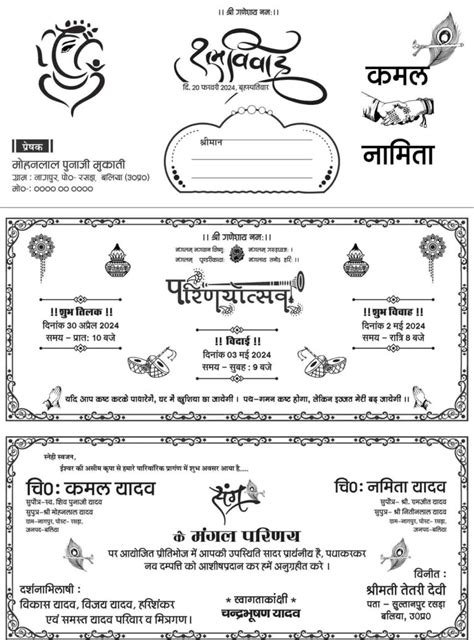 ।। श्री गणेशाय नमः ।।
शुभ विवाह
दि. 20 फरवरी 2024, बृहस्पतिवार
कमल
नामिता
श्रीमान
प्रेषक
मोहनलाल पुनाजी मुकाती
ग्राम : नागपुर, पो०- रसड़ा, बलिया (उ०प्र०)
मो०-: ०००० ०० ००००
।। श्री गणेशाय नमः ।।
मंगलम् भगवान विष्णु मंगलम् गरुड़ध्वजः ।
मंगलम् पुण्डरीकाक्षः मंगलाय तनो हरि ।।
परिणयोत्सव
!! शुभ तिलक !!
दिनांक 30 अप्रेल 2024
समय – प्रात: 10 बजे
!! विदाई !!
दिनांक 03 मई 2024
समय – सुबह : 9 बजे
!! शुभ विवाह !!
दिनांक 2 मई 2024
समय – रात्रि 8 बजे
यदि आप कष्ट करके पधारेगें, घर में खुशिया छा जायेगी । पथ-गमन कष्ट होगा, लेकिन इज्जत मेरी बढ़ जायेगी ।।
स्नेही स्वजन,
ईश्वर की असीम कृपा से हमारे पारिवारिक प्रांगण में शुभ अवसर आया है.....
चि०: कमल यादव
सुपौत्र-स्व. शिव पुनाजी यादव
सुपुत्र-श्री मोहनलाल यादव
ग्राम-नागपुर, पोस्ट- रसड़ा,
जनपद-बलिया
संग
चि०: नमिता यादव
सुपौत्री- श्री. रामजीत यादव
सुपुत्री- श्री नितीनलाल यादव
ग्राम-नागपुर, पोस्ट- रसड़ा,
जनपद-बलिया
के मंगल परिणय
पर आयोजित प्रीतिभोज में आपकी उपस्थिति सादर प्रार्थनीय है, पधाकरकर
नव दम्पति को आशीषप्रदान कर हमें अनुग्रहीत करे ।
दर्शनाभिलाषी :
विकास यादव, विजय यादव, हरिशंकर
एवं समस्त यादव परिवार व मित्रगण ।
* स्वागताकांक्षी *
चन्द्रभूषण यादव
विनीत :
श्रीमती तेतरी देवी
पता – सुल्तानपुर रसड़ा
बलिया, उ०प्र०